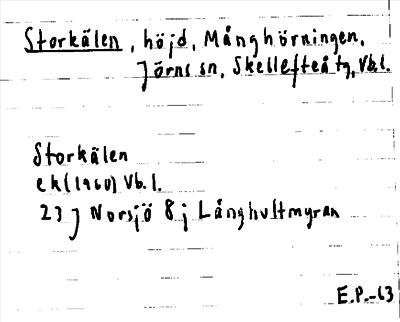 Storkälen, höjd, Månghörningen,
Jörns sn, Skellefteå tg, Vb.l.
Storkälen
ek(1960) Vb.l.
23 J Norsjö 8 j Långhultmyran
E.P.-63